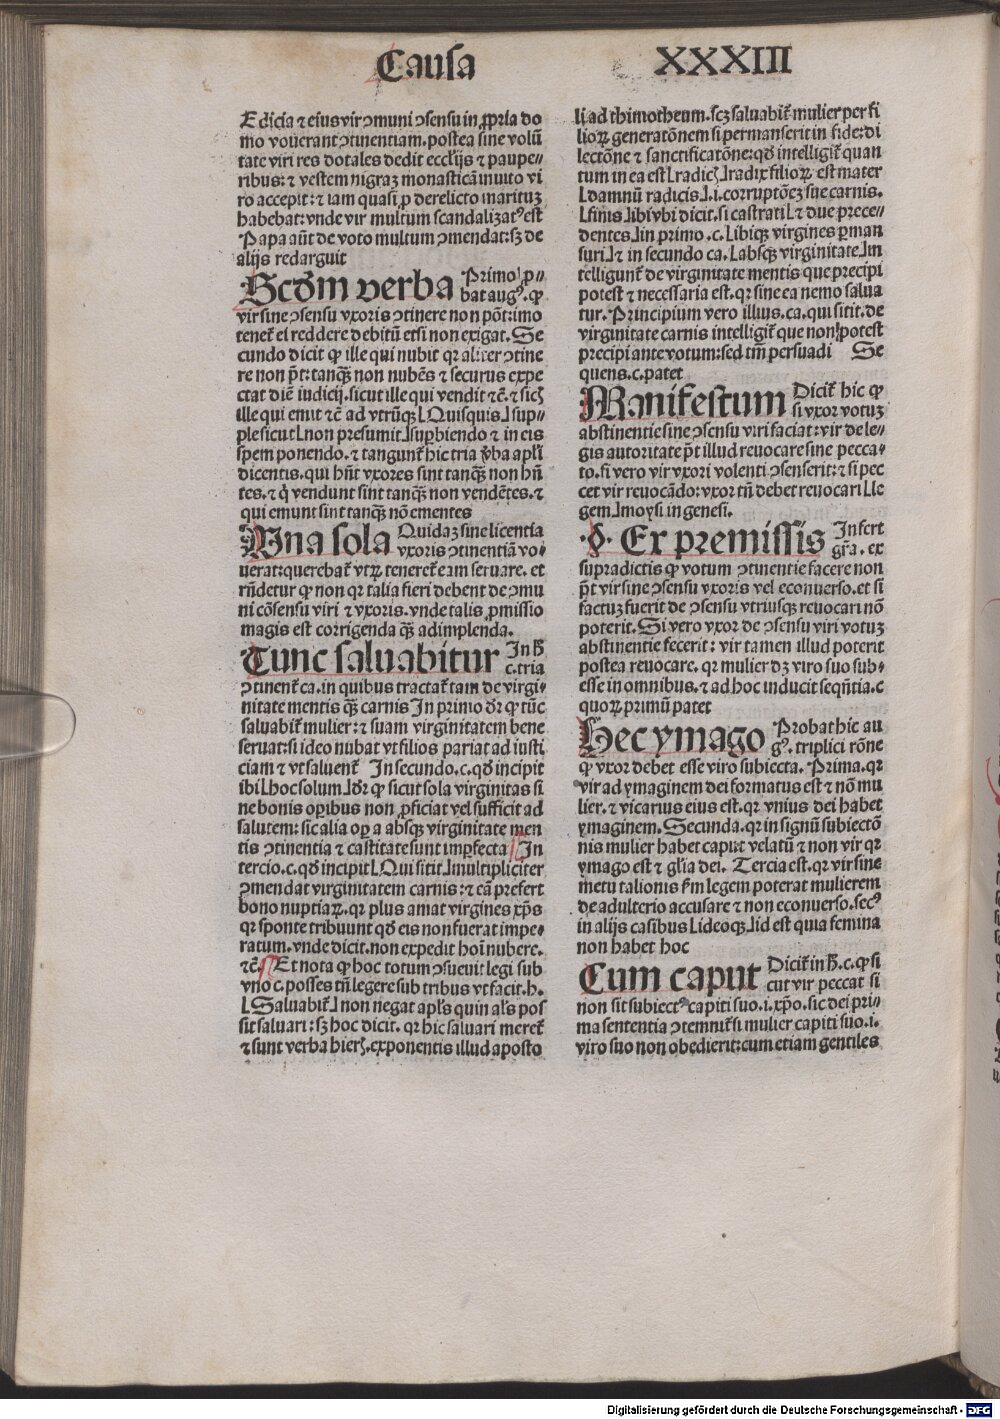 Causa XXXIII
Edicia ⁊ eius vir ꝯmuni ꝯsensu in ꝓpria do
mo vouerant ꝯtinentiam. postea sine volū
tate viri res dotales dedit eccl'ijs ⁊ paupe-
ribus: ⁊ vestem nigraꝫ monasticā inuito vi
ro accepit: ⁊ iam quasi ꝓ derelicto marituꝫ
habebat: vnde vir multum scandalizatꝰ est
Papa aūt de voto multum ꝯmendat: sꝫ de
alijs redarguit
Scd'm verba Primo ꝓ-
bat augꝰ. ꝙ
vir sine ꝯsensu vxoris ꝯtinere non pōt: imo
tenet' ei reddere debitū etsi non exigat. Se
cundo dicit ꝙ ille qui nubit qr aliter ꝯtine
re non p̄t: tanqꝫ non nubēs ⁊ securus expe
ctat diē iudicij. sicut ille qui vendit ⁊c̄. ⁊ sic
ille qui emit ⁊c̄ ad vtrūqꝫ ⌊Quisquis⌋ sup-
ple sicut ⌊non presumit⌋ suꝑbiendo ⁊ in eis
spem ponendo. ⁊ tangunt' hic tria v'ba apl'i
dicentis. qui hn̄t vxores sint tanqꝫ non hn̄
tes. ⁊ q̇ vendunt sint tanqꝫ non vendētes. ⁊
qui emunt sint tanqꝫ nō ementes
Vna sola Quidaꝫ sine licentia
vxoris ꝯtinentiā vo-
uerat: querebat' vtꝝ teneret' eam seruare. et
rn̄detur ꝙ non qr talia fieri debent de ꝯmu
ni cōsensu viri ⁊ vxoris. vnde talis ꝓmissio
magis est corrigenda qꝫ adimplenda.
Tunc saluabitur In h̄
c. tria
ꝯtinent' ca. in quibus tractat' tam de virgi-
nitate mentis qꝫ carnis In primo d'r ꝙ tūc
saluabit' mulier: ⁊ suam virginitatem bene
seruat: si ideo nubat vt filios pariat ad iusti
ciam ⁊ vt saluent' In secundo. c. qd' incipit
ibi ⌊hoc solum⌋ d'r ꝙ sicut sola virginitas si
ne bonis oꝑibus non ꝓficiat vel sufficit ad
salutem: sic alia oꝑa absqꝫ virginitate men
tis ꝯtinentia ⁊ castitate sunt imꝑfecta In
tercio. c. qd' incipit ⌊Qui sitit⌋ multipliciter
ꝯmendat virginitatem carnis: ⁊ eā prefert
bono nuptiaꝝ. qr plus amat virgines xp̄s
qr sponte tribuunt qd' eis non fuerat impe-
ratum. vnde dicit. non expedit hoī nubere.
⁊c̄. Et nota ꝙ hoc totum ꝯsueuit legi sub
vno c. posses tn̄ legere sub tribus vt facit. h.
⌊Saluabit'⌋ non negat apl's quin al's pos
sit saluari: sꝫ hoc dicit. qr hic saluari meret'
⁊ sunt verba hier. exponentis illud aposto
li ad thimotheum. scꝫ saluabit' mulier per fi
lioꝝ generatōnem si permanserit in fide: di
lectōne ⁊ sanctificatōne: qd' intelligit' quan
tum in ea est ⌊radic'⌋ radix filioꝝ est mater
⌊damnū radicis⌋. i. corruptōeꝫ sue carnis.
⌊finis⌋ ibi vbi dicit. si castrati ⌊⁊ due prece-
dentes⌋ in primo. c. ⌊ibiqꝫ virgines ꝑman
suri⌋ ⁊ in secundo ca. ⌊absqꝫ virginitate⌋ in
telligunt' de virginitate mentis que precipi
potest ⁊ necessaria est. qr sine ea nemo salua
tur. Principium vero illius. ca. qui sitit. de
virginitate carnis intelligit' que non potest
precipi ante votum: sed tm̄ persuadi Se
quens. c. patet
Manifestum Dicit' hic ꝙ
si vxor votuꝫ
abstinentie sine ꝯsensu viri faciat: vir de le-
gis autoritate p̄t illud reuocare sine pecca-
to. si vero vir vxori volenti ꝯsenserit: ⁊ si pec
cet vir reuocādo: vxor tn̄ debet reuocari ⌊le
gem⌋ moysi in genesi.
§. Ex premissis Infert
gr̄a. ex
supradictis ꝙ votum ꝯtinentie facere non
p̄t vir sine ꝯsensu vxoris vel econuerso. et si
factuꝫ fuerit de ꝯsensu vtriusqꝫ reuocari nō
poterit. Si vero vxor de ꝯsensu viri votuꝫ
abstinentie fecerit: vir tamen illud poterit
postea reuocare. qr mulier dꝫ viro suo sub-
esse in omnibus. ⁊ ad hoc inducit seqn̄tia. c
quoꝝ primū patet
Hec ymago Probat hic au
gꝰ. triplici rōne
ꝙ vxor debet esse viro subiecta. Prima. qr
vir ad ymaginem dei formatus est ⁊ nō mu
lier. ⁊ vicarius eius est. qr vnius dei habet
ymaginem. Secunda. qr in signū subiectō
nis mulier habet caput velatū ⁊ non vir qr
ymago est ⁊ gl'ia dei. Tercia est. qr vir sine
metu talionis s'm legem poterat mulierem
de adulterio accusare ⁊ non econuerso. secꝰ
in alijs casibus ⌊ideoqꝫ⌋ id est quia femina
non habet hoc
Cum caput Dicit' in h̄. c. ꝙ si
cut vir peccat si
non sit subiectꝰ capiti suo. i. xp̄o. sic dei pri-
ma sententia ꝯtemnit' si mulier capiti suo. i.
viro suo non obedierit: cum etiam gentiles
Digitalisierung gefördert durch die Deutsche Forschungsgemeinschaft - DFG